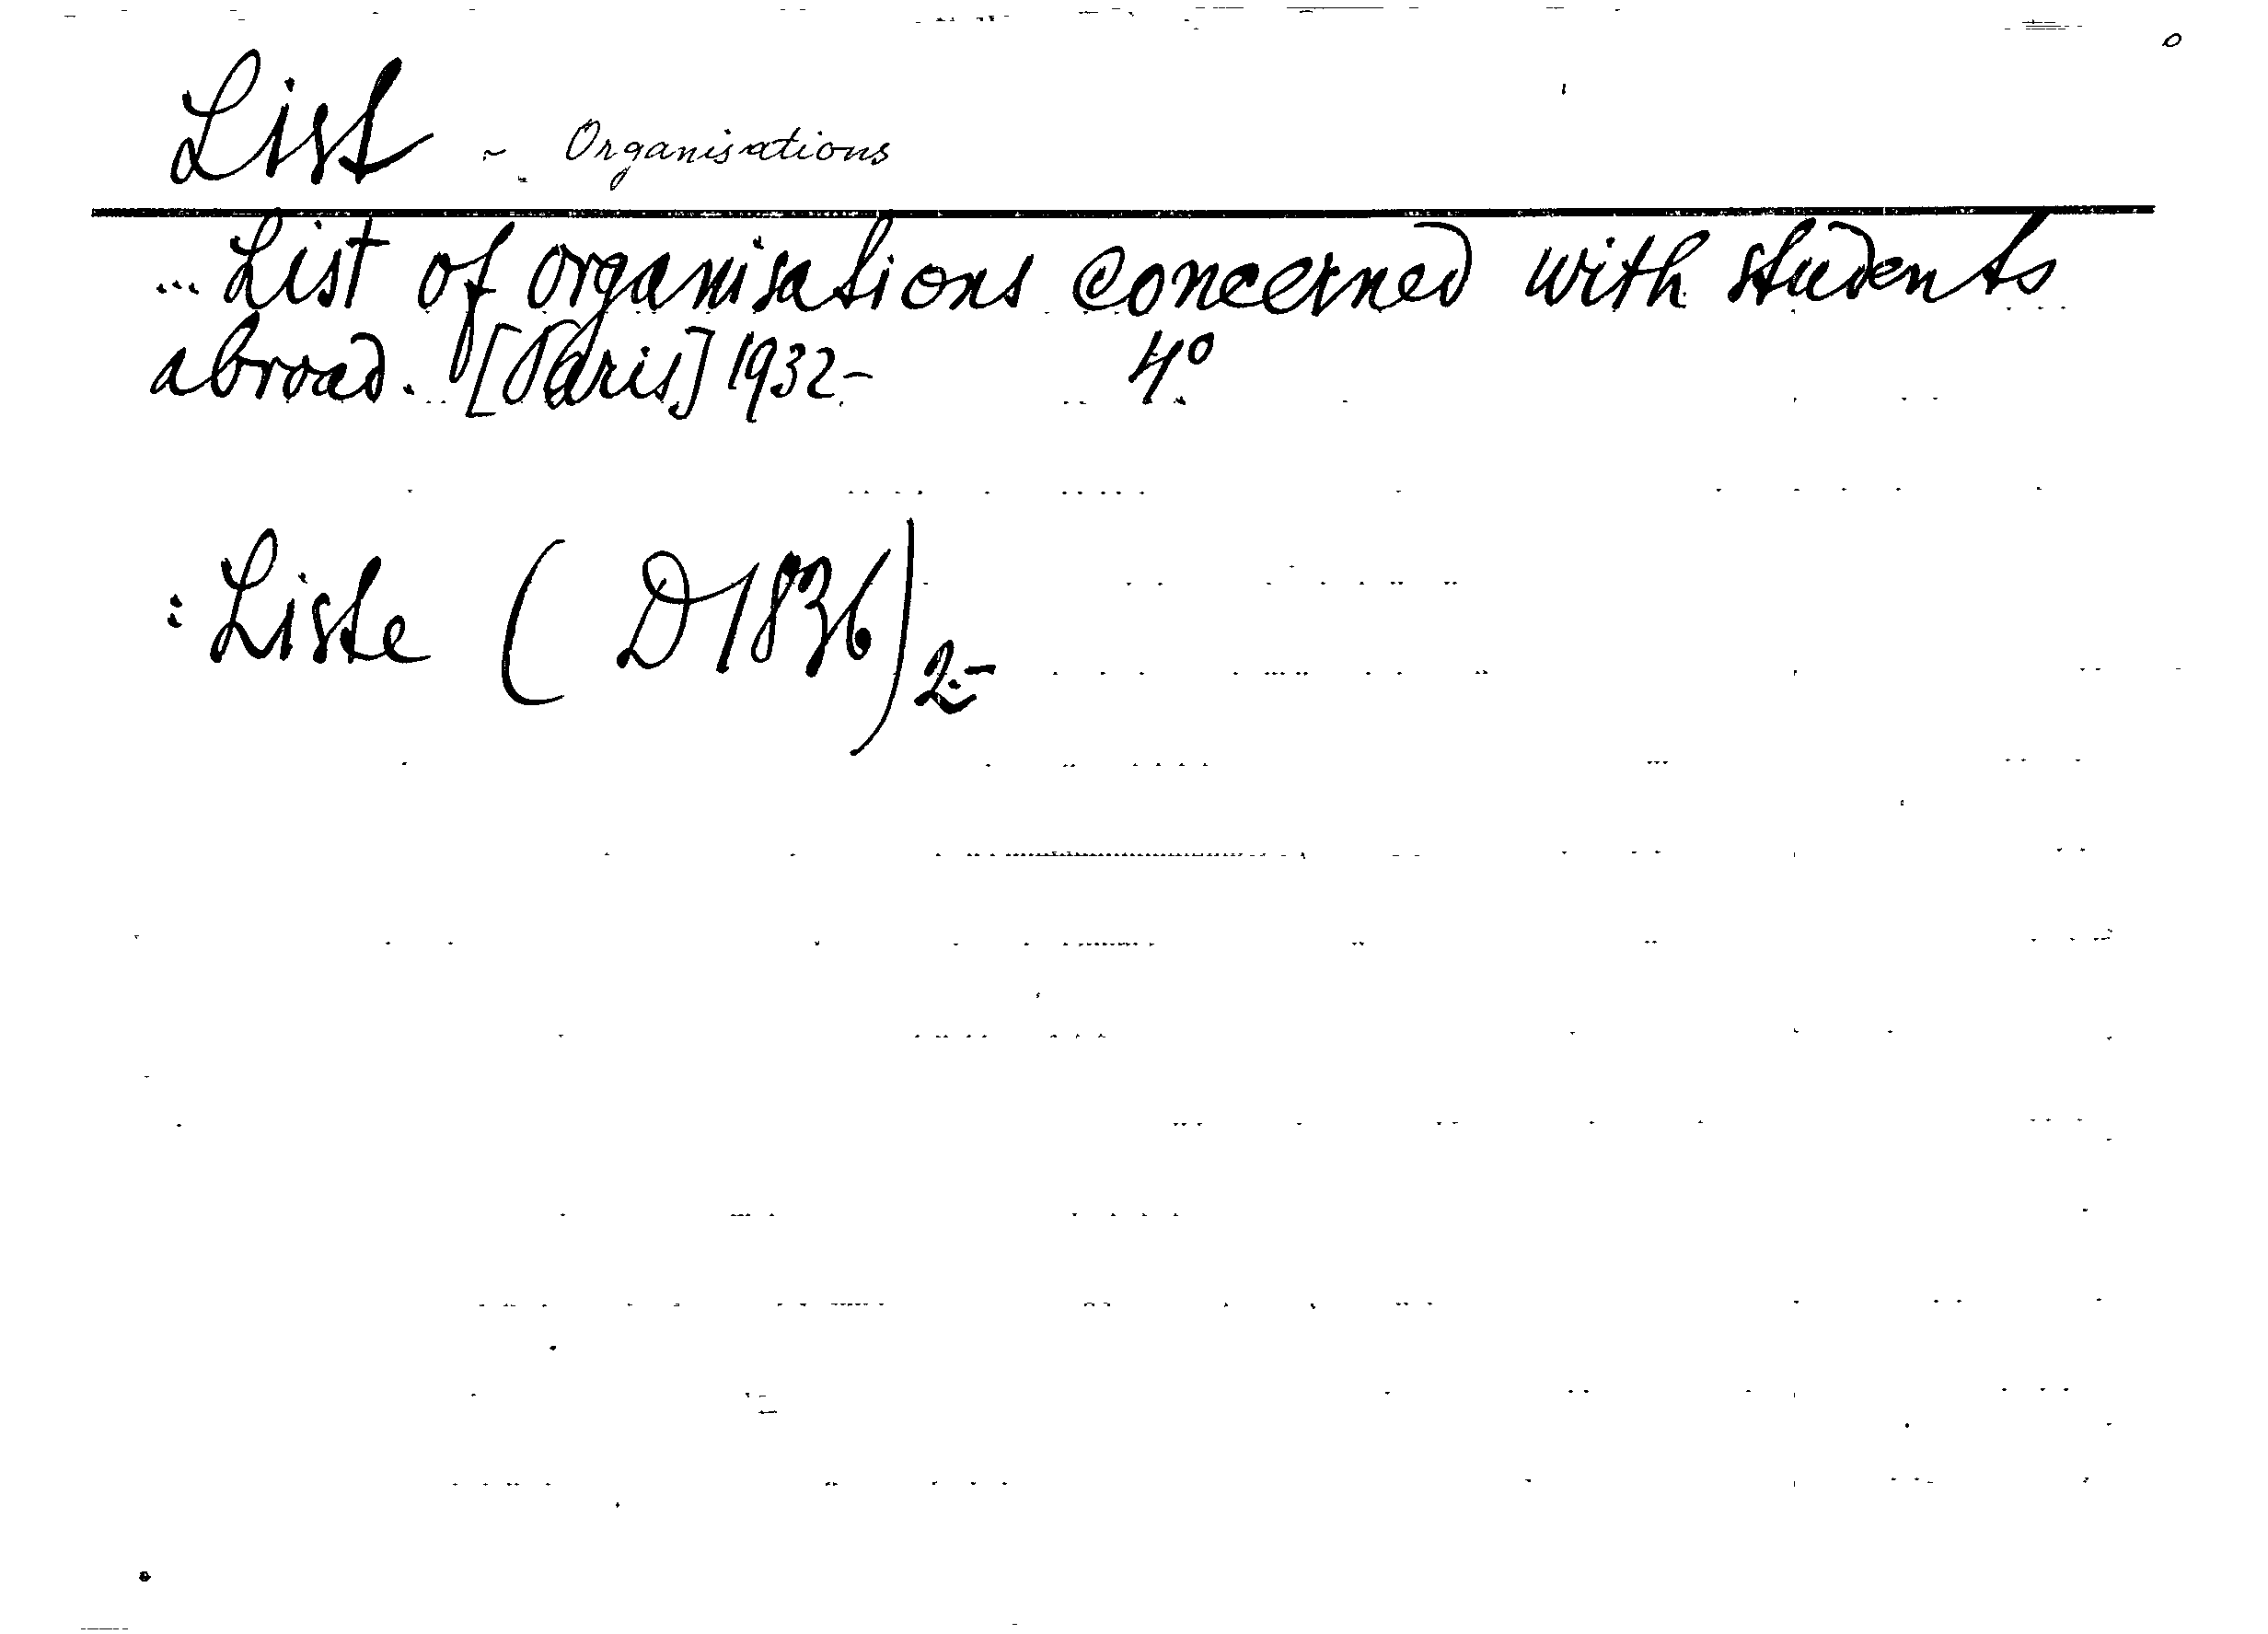 List - Organisations
... List of organisations concerned with students
abroad. [Paris] 1932- 4°
: Liste ( D1836) 2.-